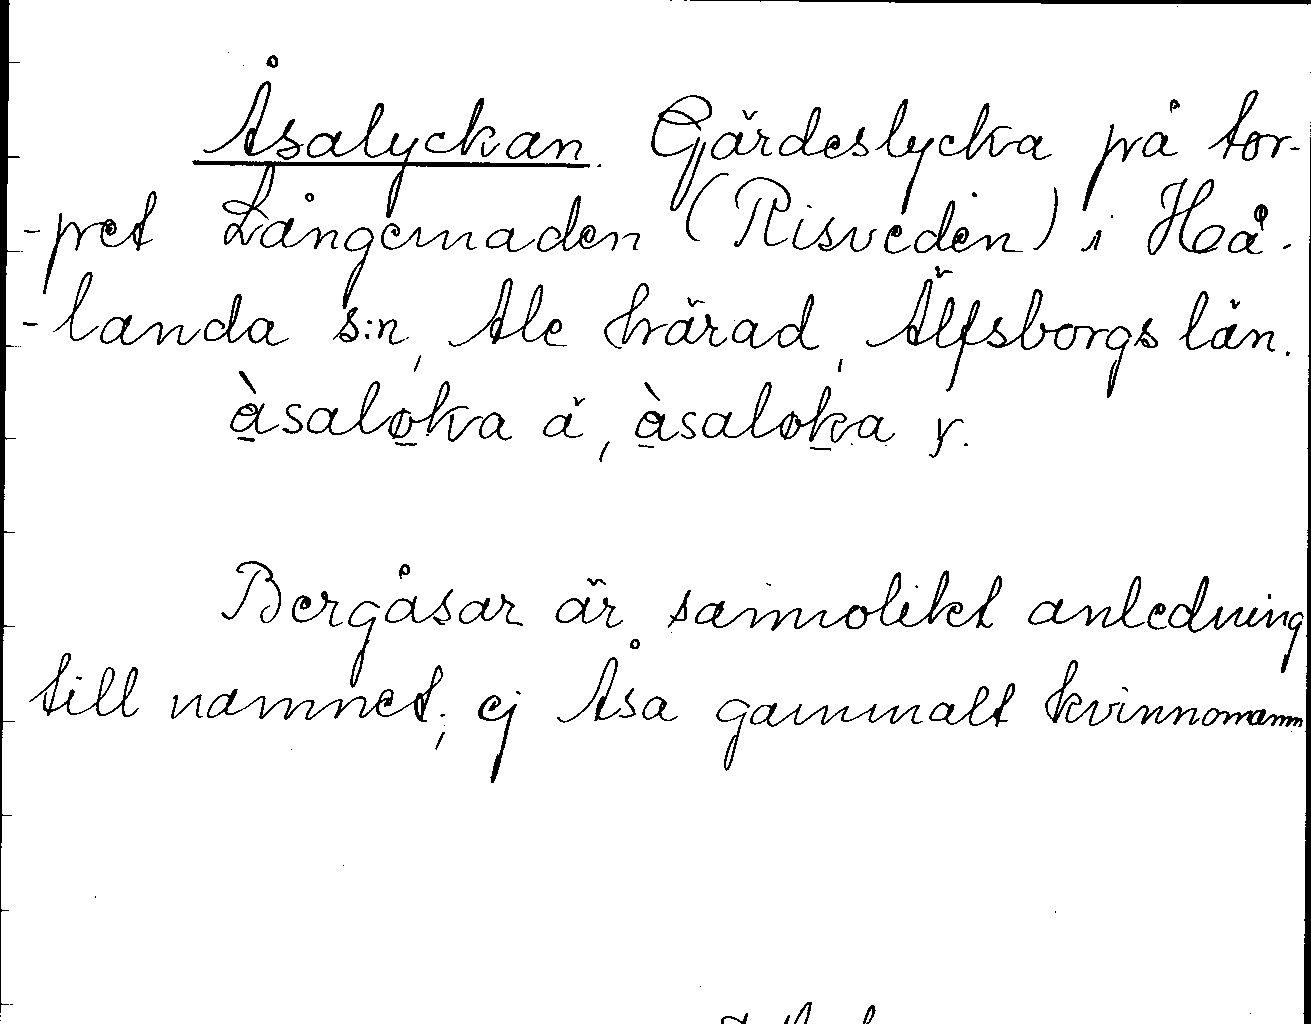 Åsalyckan. Gärdeslycka på tor-
-pet Långemaden (Risveden) i Hå-
-landa s:n, Ale härad, Älfsborgs län.
àsaloka ä, àsaloka y.
Bergåsar är sannolikt anledning
till namnet; ej Åsa gammalt kvinnonamn